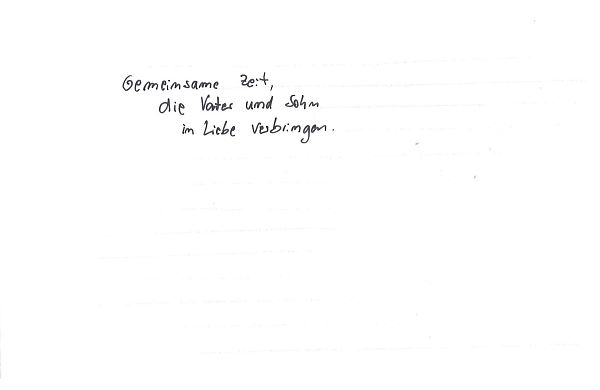 Gemeinsame Zeit,
die Vater und Sohn
in Liebe verbringen.